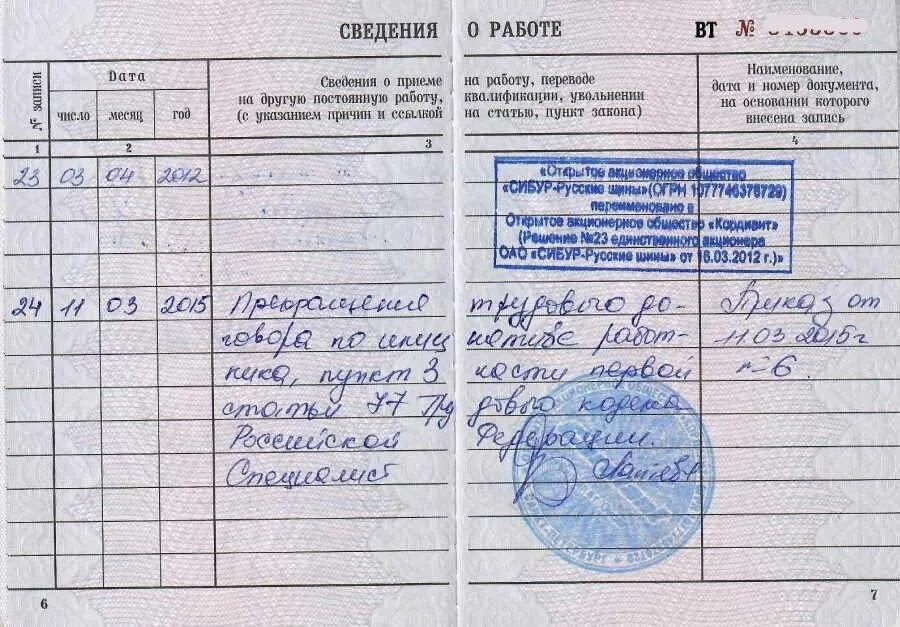 СВЕДЕНИЯ О РАБОТЕ ВТ №
№ записи
Дата
число месяц год
Сведения о приеме на работу, переводе
на другую постоянную работу, квалификации, увольнении
(с указанием причин и ссылкой на статью, пункт закона)
Наименование,
дата и номер документа,
на основании которого
внесена запись
1 2 3 4
23 03 04 2012
«Открытое акционерное общество
«СИБУР-Русские шины» (ОГРН 1077746376729)
переименовано в
Открытое акционерное общество «Кордиант»
(Решение №23 единственного акционера
ОАО «СИБУР-Русские шины» от 16.03.2012 г.)»
24 11 03 2015 Прекращение трудового до- Приказ от
говора по иници ативе работ- 11.03.2015г
ника, пункт 3 части первой №6
статьи 77 Тру дового кодекса
Российской Федерации.
Специалист
6 7